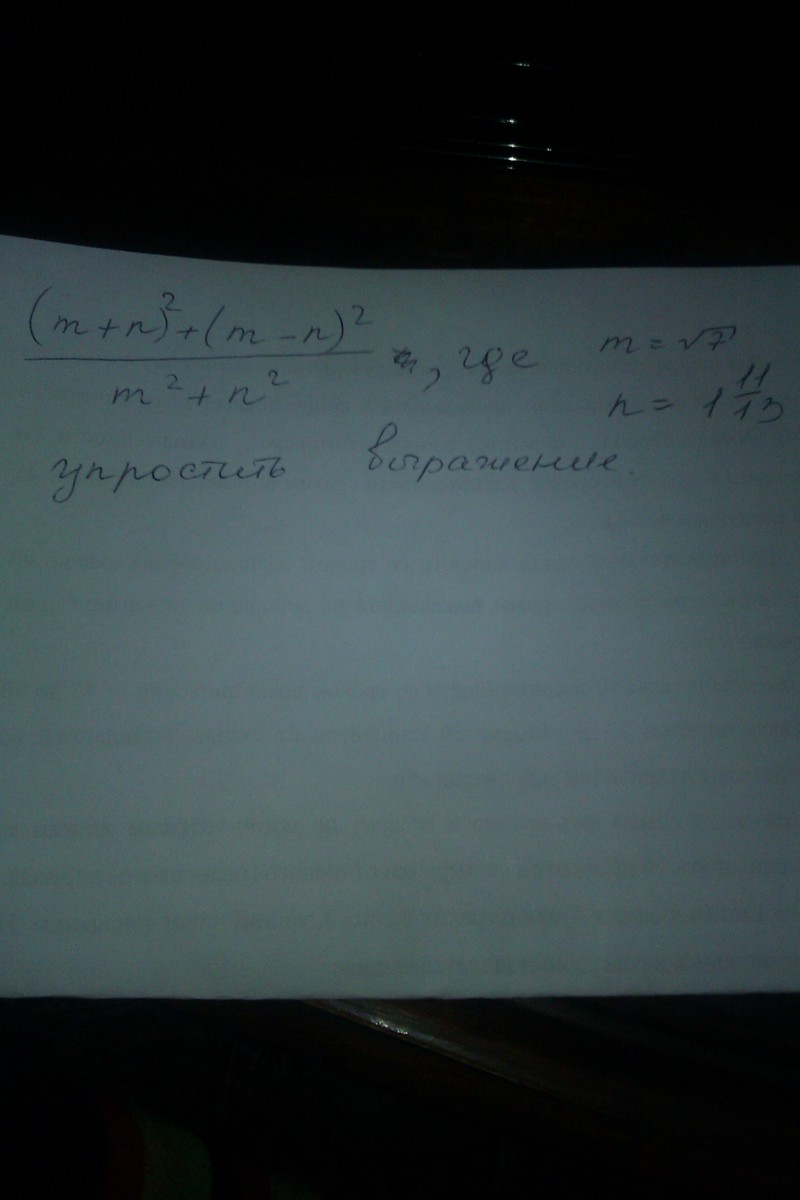 (m+n)²+(m-n)²
m²+n²
, где
m=√7
n=1 11/13
упростить выражение.